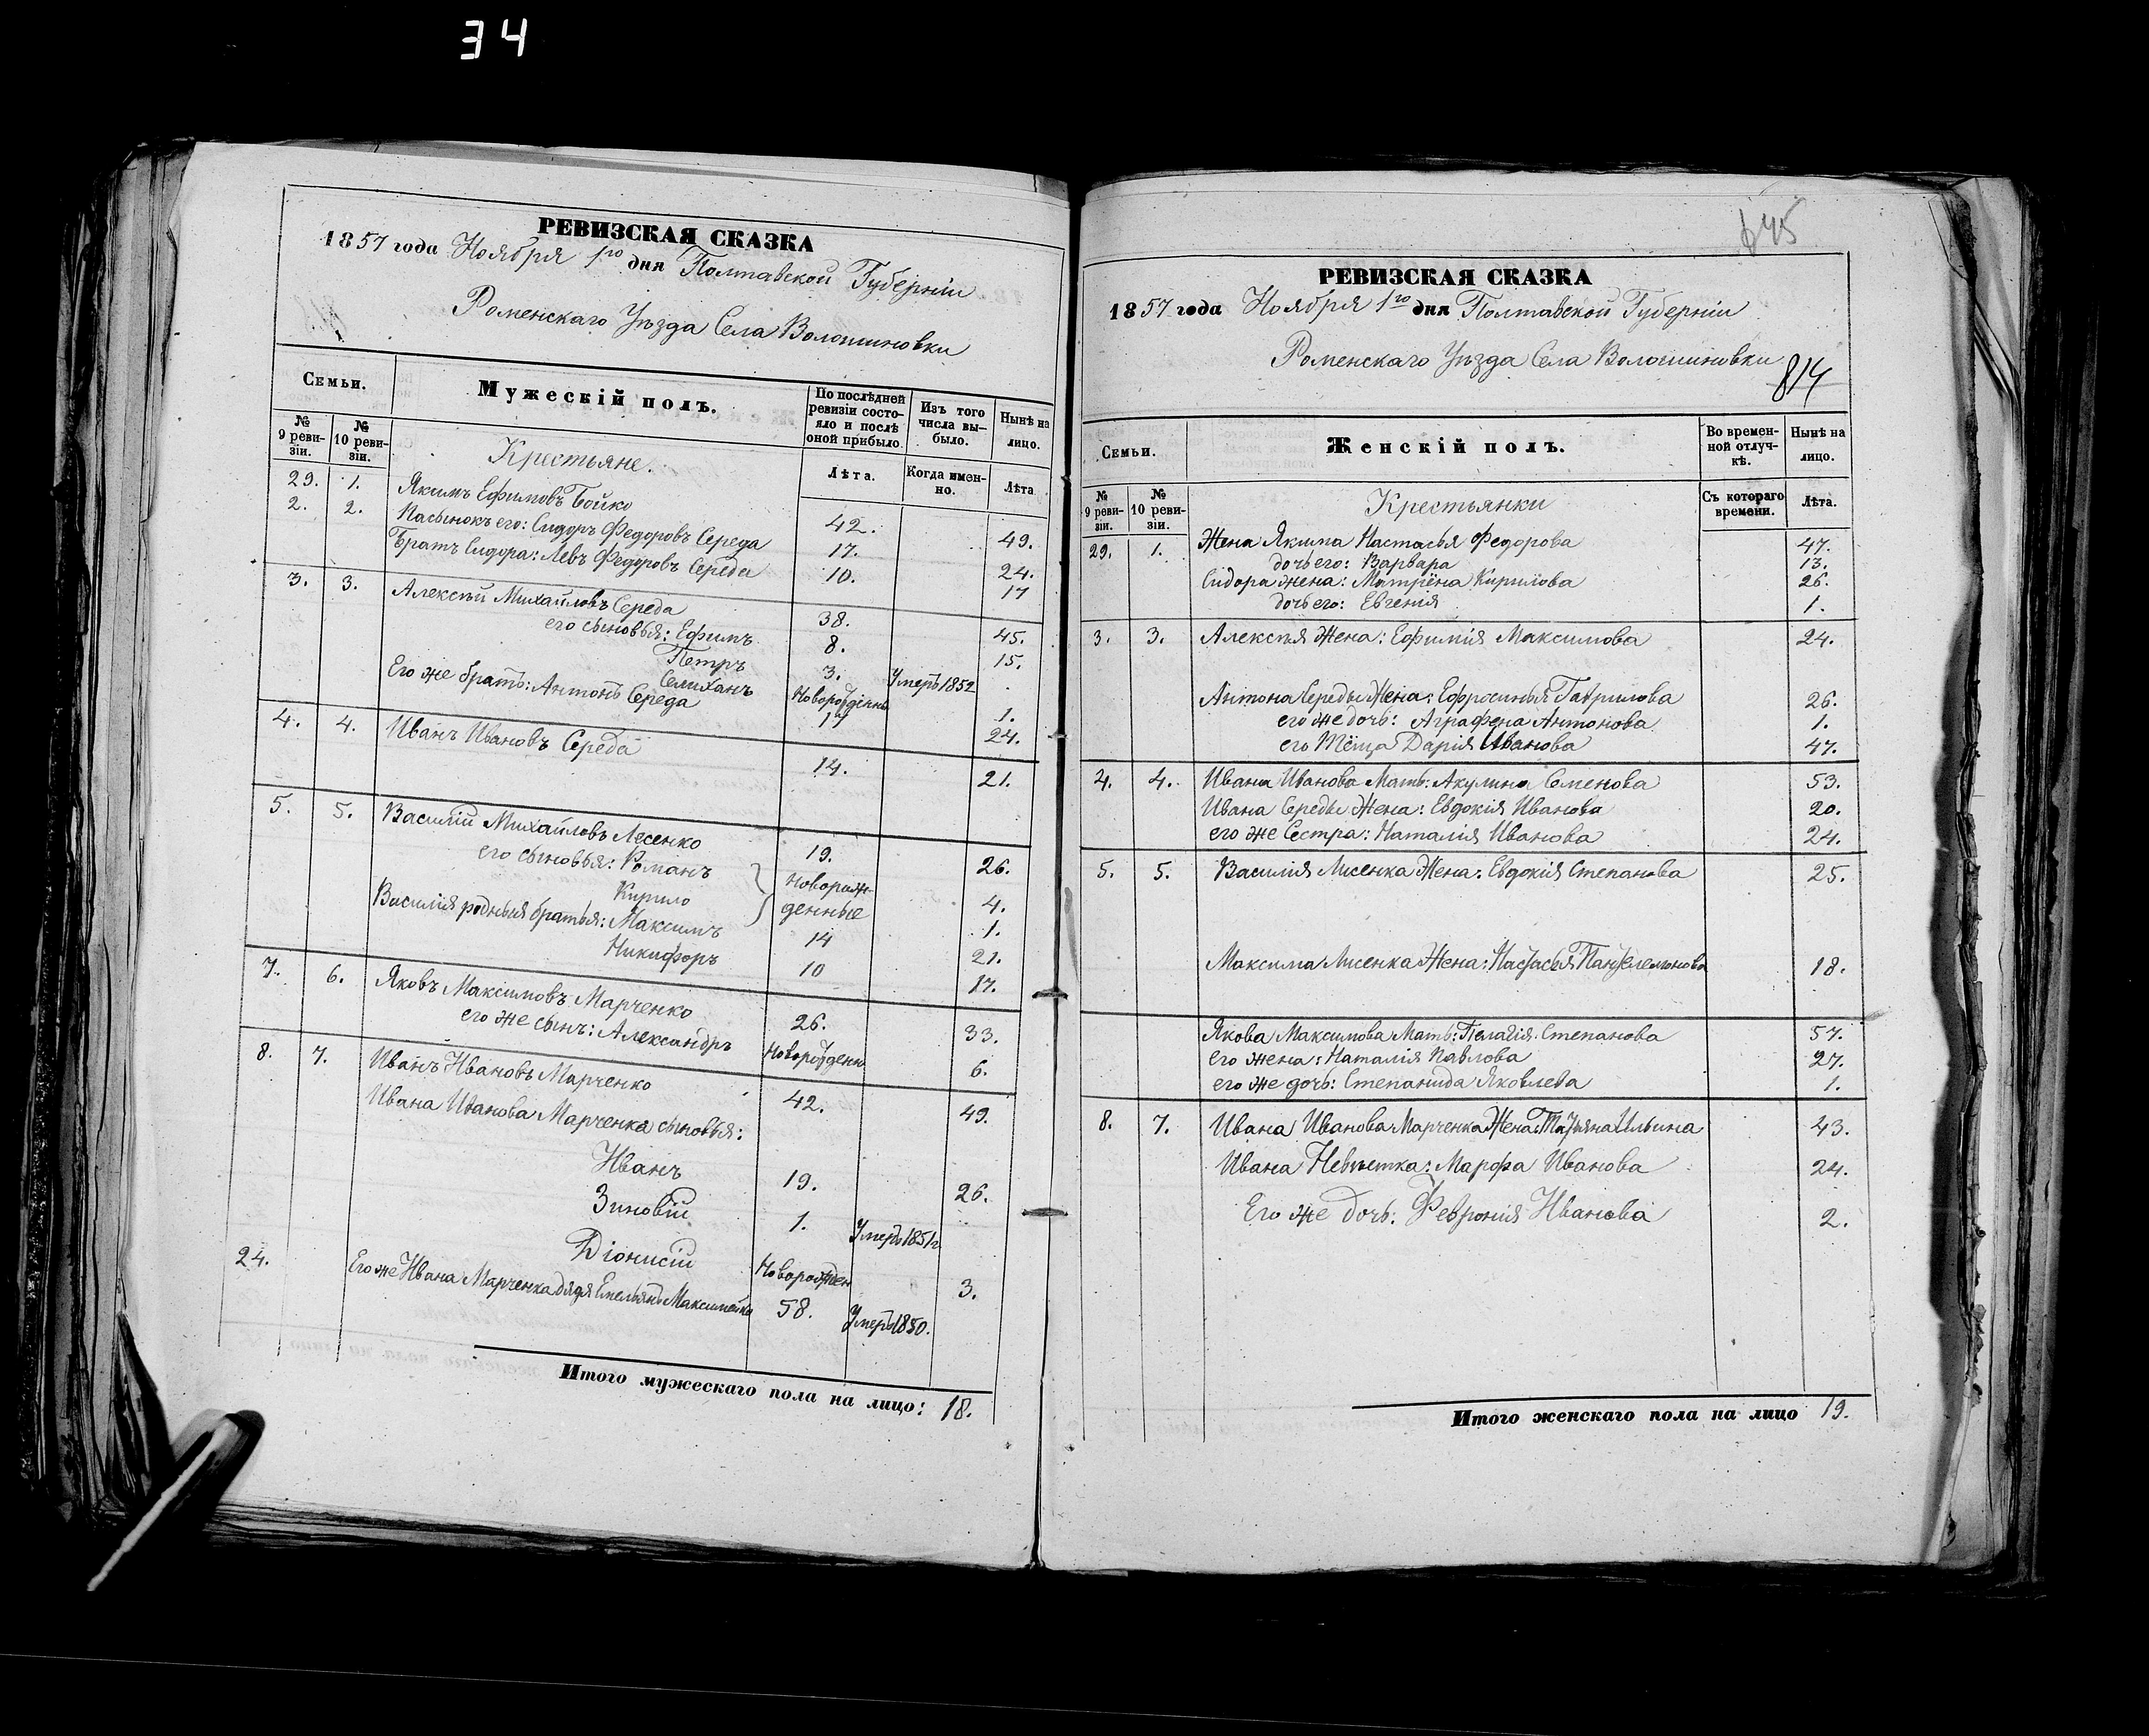 34
РЕВИЗСКАЯ СКАЗКА
1857 года Ноября 1го дня Полтавской Губерніи
Роменскаго Уѣзда Села Волошиновки
Семьи.
Мужескій полъ.
По послѣдней ревизіи состояло и послѣ оной прибыло.
Изъ того числа выбыло.
Нынѣ на лицо.
№ 9 ревизіи.
№ 10 ревизіи.
Лѣта.
Когда именно.
Лѣта
Крестьяне.
29. 1. Якимъ Ефимовъ Бойко 42. 49.
2. 2. Пасынокъ его: Сидоръ Федоровъ Середа 17. 24.
Братъ Сидора: Левъ Федоровъ Середа 10. 17
3. 3. Алексѣй Михайловъ Середа 38. 45.
его сыновья: Ефимъ 8. 15.
Петръ 3. Умеръ 1852
Селиханъ Новорожденны 1.
Его же братъ: Антонъ Середа 17 24.
4. 4. Иванъ Ивановъ Середа 14. 21.
5. 5. Василій Михайловъ Лесенко 19. 26.
его сыновья: Романъ Новорож- 4.
Кирило денные 1.
Василія родныя братья: Максимъ 14 21.
Никифоръ 10 17.
7. 6. Яковъ Максимовъ Марченко 26. 33.
его же сынъ: Александръ Новорожденн 6.
8. 7. Иванъ Ивановъ Марченко 42. 49.
Ивана Иванова Марченка сыновья:
Иванъ 19. 26.
Зиновій 1. Умеръ 1851г
Діонисій Новорожден 3.
24. Его же Ивана Марченка дядя Емельянъ 58. Умеръ 1850.
Итого мужескаго пола на лицо: 18.
645
РЕВИЗСКАЯ СКАЗКА
1857 года Ноября 1го дня Полтавской Губерніи
Роменскаго Уѣзда Села Волошиновки
814
Семьи.
Женскій полъ.
Во временной отлучкѣ.
Нынѣ на лицо.
№ 9 ревизіи.
№ 10 ревизіи.
Съ котораго времени.
Лѣта.
Крестьянки
29. 1. Жена Якима Настасья Федорова 47.
дочь его: Варвара 13.
Сидора жена: Матрёна Кирилова 26.
дочь его: Евгенія 1.
3. 3. Алексѣя Жена: Ефимія Максимова 24.
Антона Середы Жена: Ефросинья Гаврилова 26.
его же дочь: Аграфена Антонова 1.
его Тёща Дарія Иванова 47.
4. 4. Ивана Иванова Мать: Акулина Семенова 53.
Ивана Середы Жена: Евдокія Иванова 20.
его же Сестра: Наталія Иванова 24.
5. 5. Василія Лисенка Жена: Евдокія Степанова 25.
Максима Лисенка Жена: Настасья Пантелемонова 18.
Якова Максимова Мать: Пелагія Степанова 57.
его жена: Наталія Павлова 27.
его же дочь: Степанида Яковлева 1.
8. 7. Ивана Иванова Марченка Жена: Татьяна Ильина 43.
Ивана Невѣстка: Марфа Иванова 24.
Его же дочь: Февронія Иванова 2.
Итого женскаго пола на лицо 19.